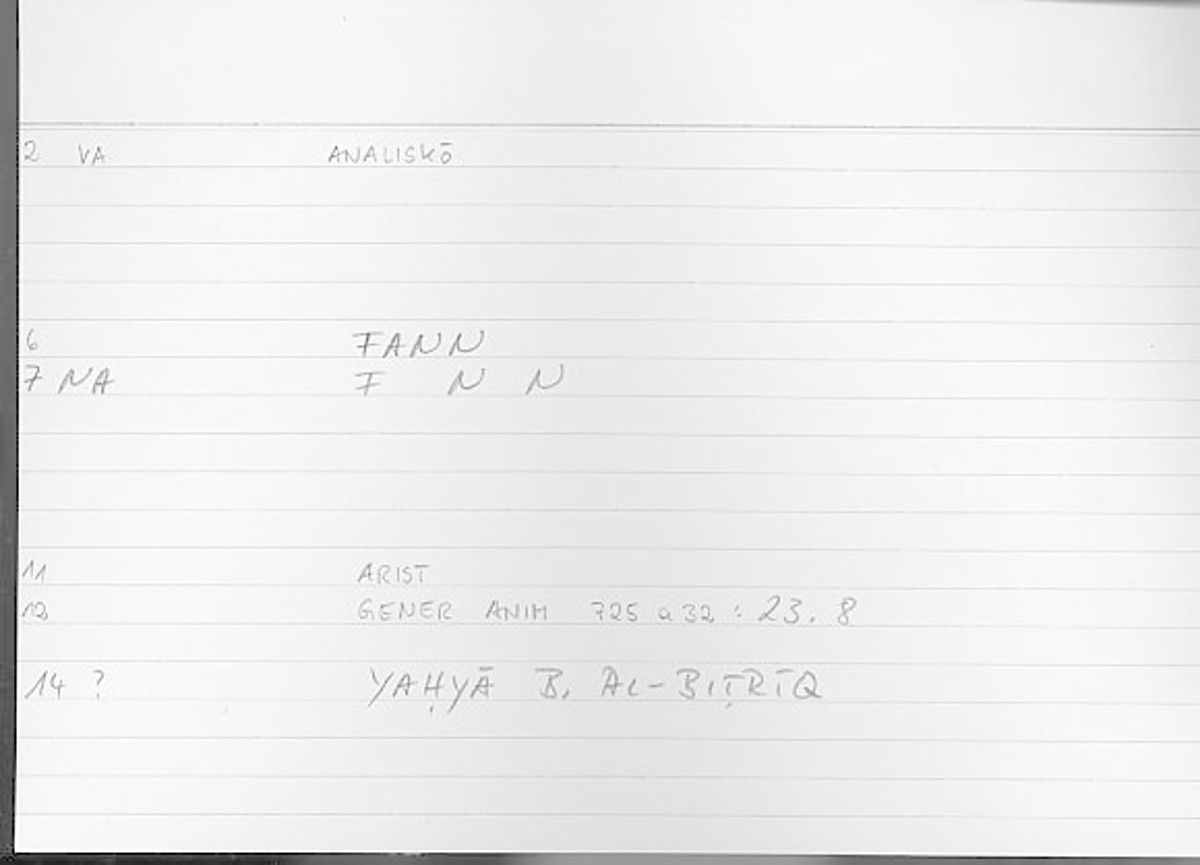 2 VA ANALISKŌ
6 FANN
7 NA F N N
11 ARIST
12 GENER ANIM 725 a 32 : 23. 8
14 ? YAḤYĀ B. AL-BIṬRĪQ